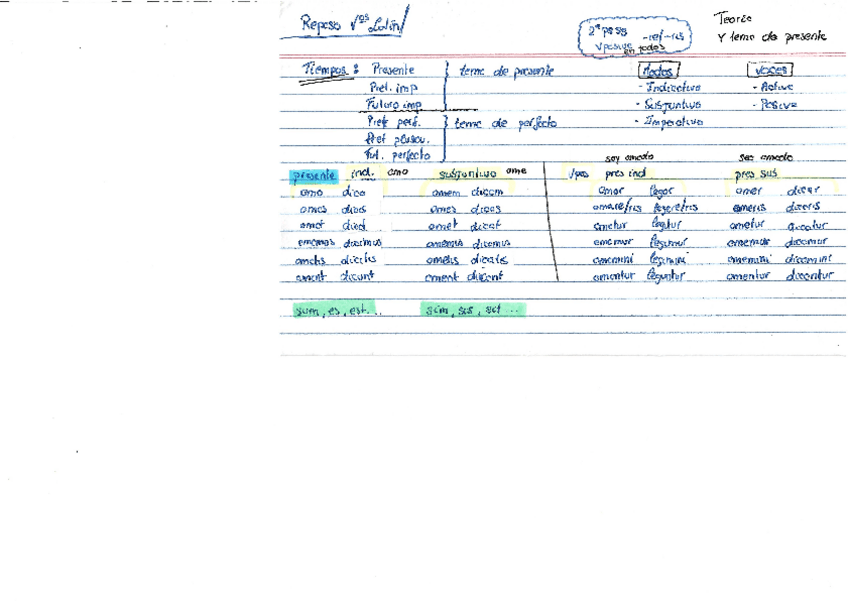 Repaso Vos Latín
2ª pass -re/-ris
v pasiva en todos
Teoría
y tema de presente
Tiempos: Presente } tema de presente
Pret. imp
Futuro imp
Pret. perf. } tema de perfecto
Pret. pluscu.
Fut. perfecto
Modos
- Indicativo
- Subjuntivo
- Imperativo
voces
- Activa
- Pasiva
soy amado
sea amado
presente ind. amo subjuntivo ame
amo dico amem dicam
amas dicis ames dicas
amat dicit amet dicat
amamus dicimus amemus dicamus
amatis dicitis ametis dicatis
amant dicunt ament dicant
pres ind pres sus
amor legor amer dicar
amare/ris legere/ris ameris dicaris
amatur legitur ametur dicatur
amamur legimur amemur dicamur
amamini legimini amemini dicamini
amantur leguntur amentur dicantur
sum, es, est... sim, sis, sit...